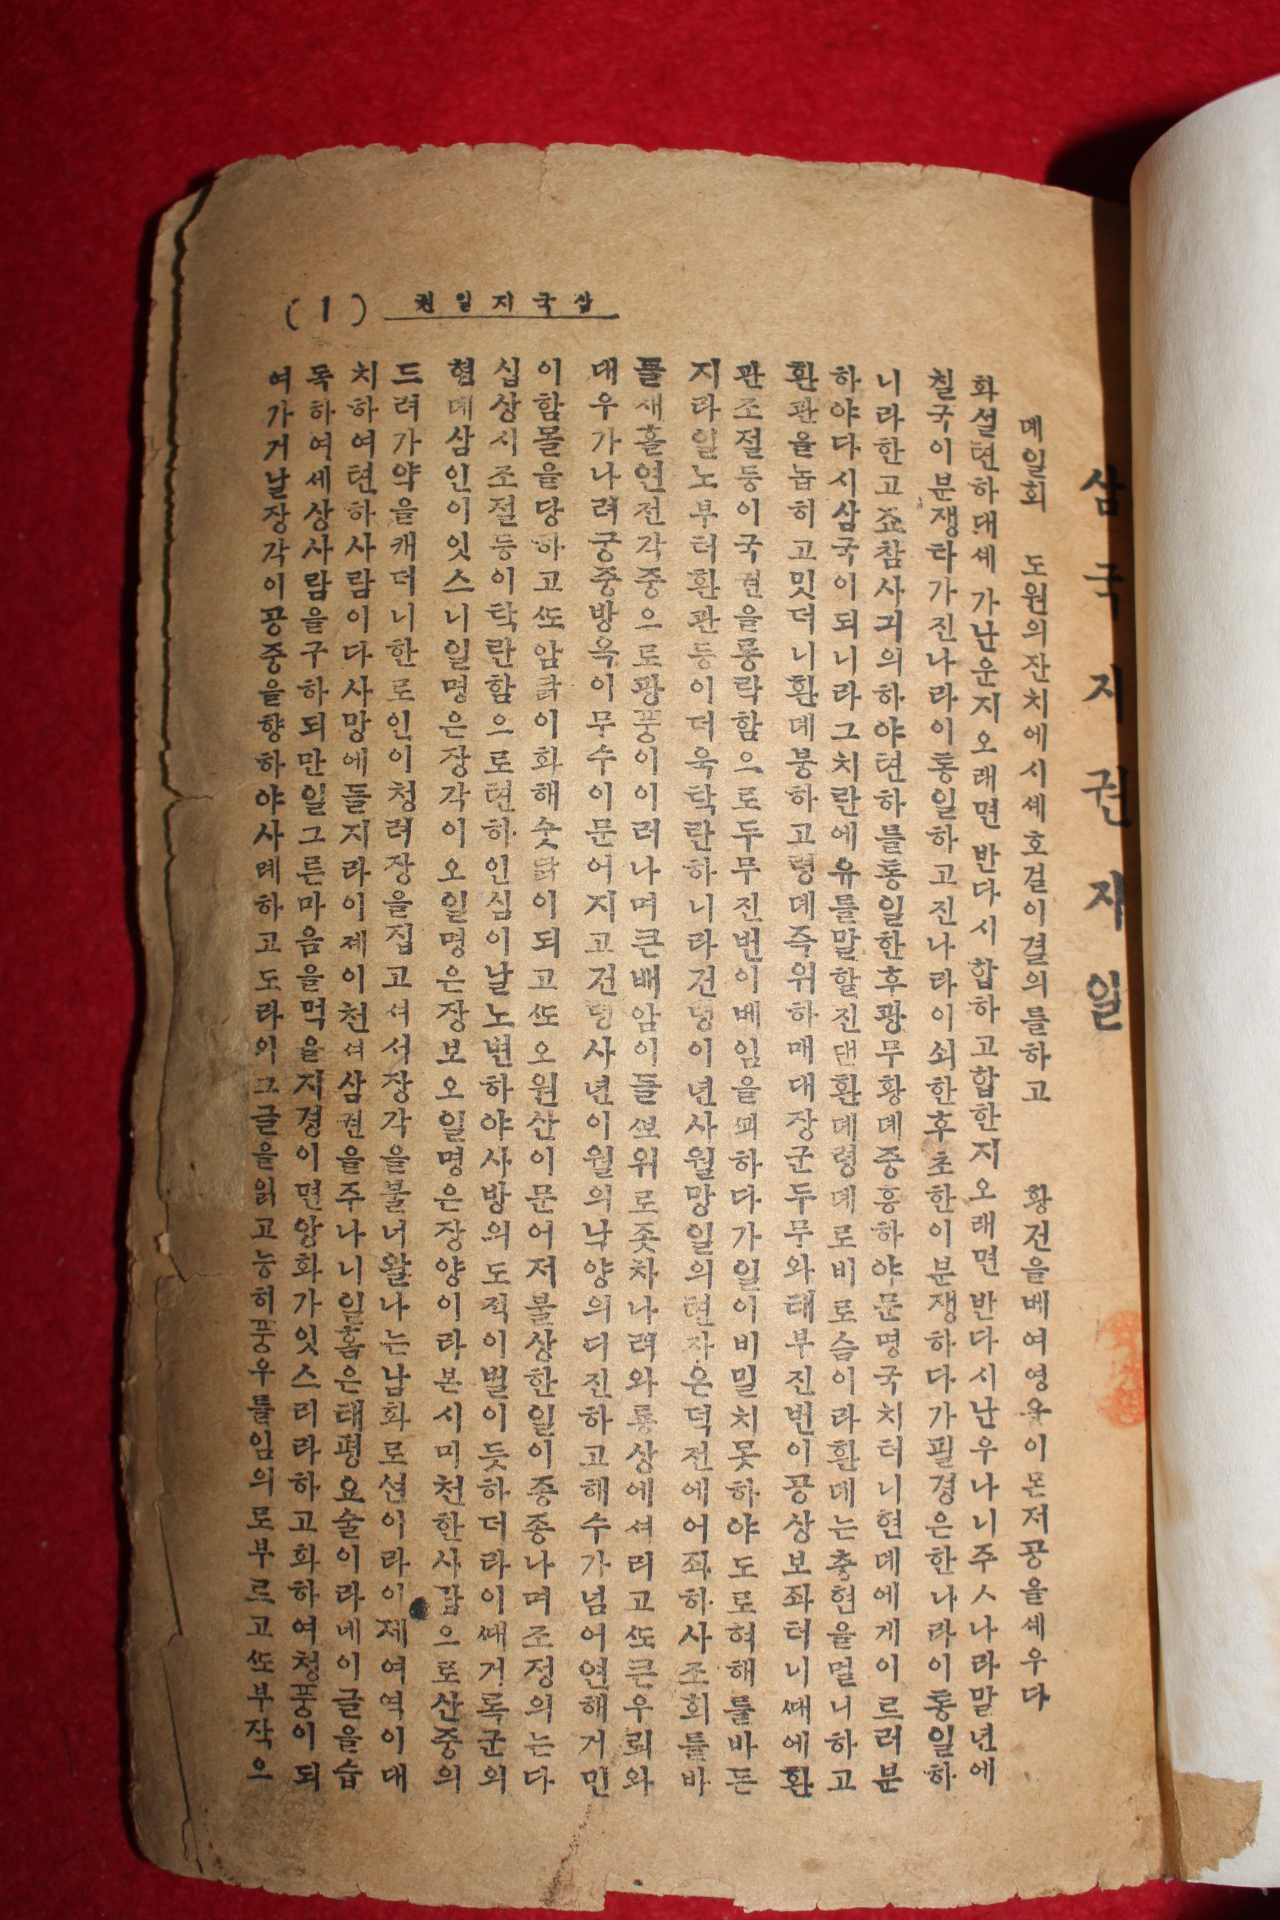 삼국지권지일
뎨일회 도원의잔치에시셰호걸이결의를하고 황건을베여영웅이몬저공을셰우다
화셜텬하대셰가난운지오래면반다시합하고합한지오래면반다시난우나니주ㅅ나라말년에
칠국이분쟁하다가진나라이통일하고진나라이쇠한후초한이분쟁하다가필경은한나라이통일하
니라한고죠참사긔의하야텬하를통일한후광무황뎨중흥하야문명국치터니현뎨에게이르러분
하야다시삼국이되니라그치란에유를말할진댄환뎨령뎨로비로슴이라환뎨는충현을멀니하고
환관을놉히고밋더니환뎨붕하고령뎨즉위하매대장군두무와태부진번이공상보좌터니때에환
관조절등이국권을롱락함으로두무진번이베임을꾀하다가일이비밀치못하야도로혀해를바든
지라일노부터환관등이더욱탁란하니라건녕이년사월망일의텬자온덕전에어좌하사조회를바
들새홀연전각중으로광풍이이러나며큰배암이들보위로좃차나려와룡상에셔리고또큰우뢰와
대우가나려궁중방옥이무수이문어지고건녕사년이월의낙양의디진하고해수가넘어연해거민
이함몰을당하고또암닭이화해숫닭이되고또오원산이문어저불상한일이종종나며조정의는다
십상시조절등이탁란함으로텬하인심이날노변하야사방의도적이벌이듯하더라이때거록군의
형뎨삼인이잇스니일명은장각이오일명은장보오일명은장양이라본시미천한사람으로산중의
드러가약을캐더니한로인이청려장을집고셔서장각을불너왈나는남화로션이라이제여역이대
치하여텬하사람이다사망에들지라이졔이천셔삼권을주나니일홈은태평요술이라네이글을습
독하여세상사람을구하되만일그른마음을먹을지경이면앙화가잇스리라하고화하여청풍이되
여가거날장각이공중을향하야사례하고도라와그글을읽고능히풍우를임의로부르고또부작으
삼국지일권 (1)